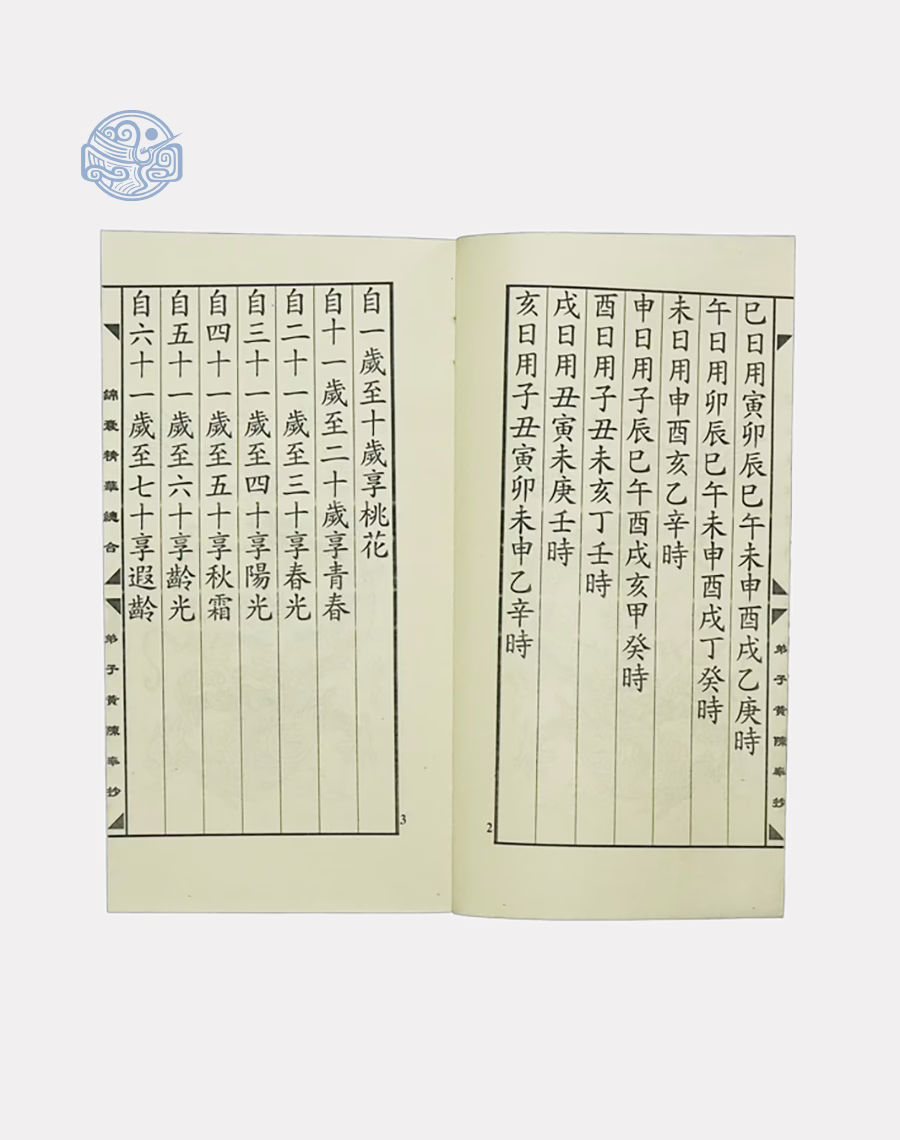 巳日用寅卯辰巳午未申酉戌乙庚時
午日用卯辰巳午未申酉戌丁癸時
未日用申酉亥乙辛時
申日用子辰巳午酉戌亥甲癸時
酉日用子丑未亥丁壬時
戌日用丑寅未庚壬時
亥日用子丑寅卯未申乙辛時
弟子黃陳奉抄
2
自一歲至十歲享桃花
自十一歲至二十歲享青春
自二十一歲至三十享春光
自三十一歲至四十享陽光
自四十一歲至五十享秋霜
自五十一歲至六十享齡光
自六十一歲至七十享遐齡
錦囊精華總合
弟子黃陳奉抄
3